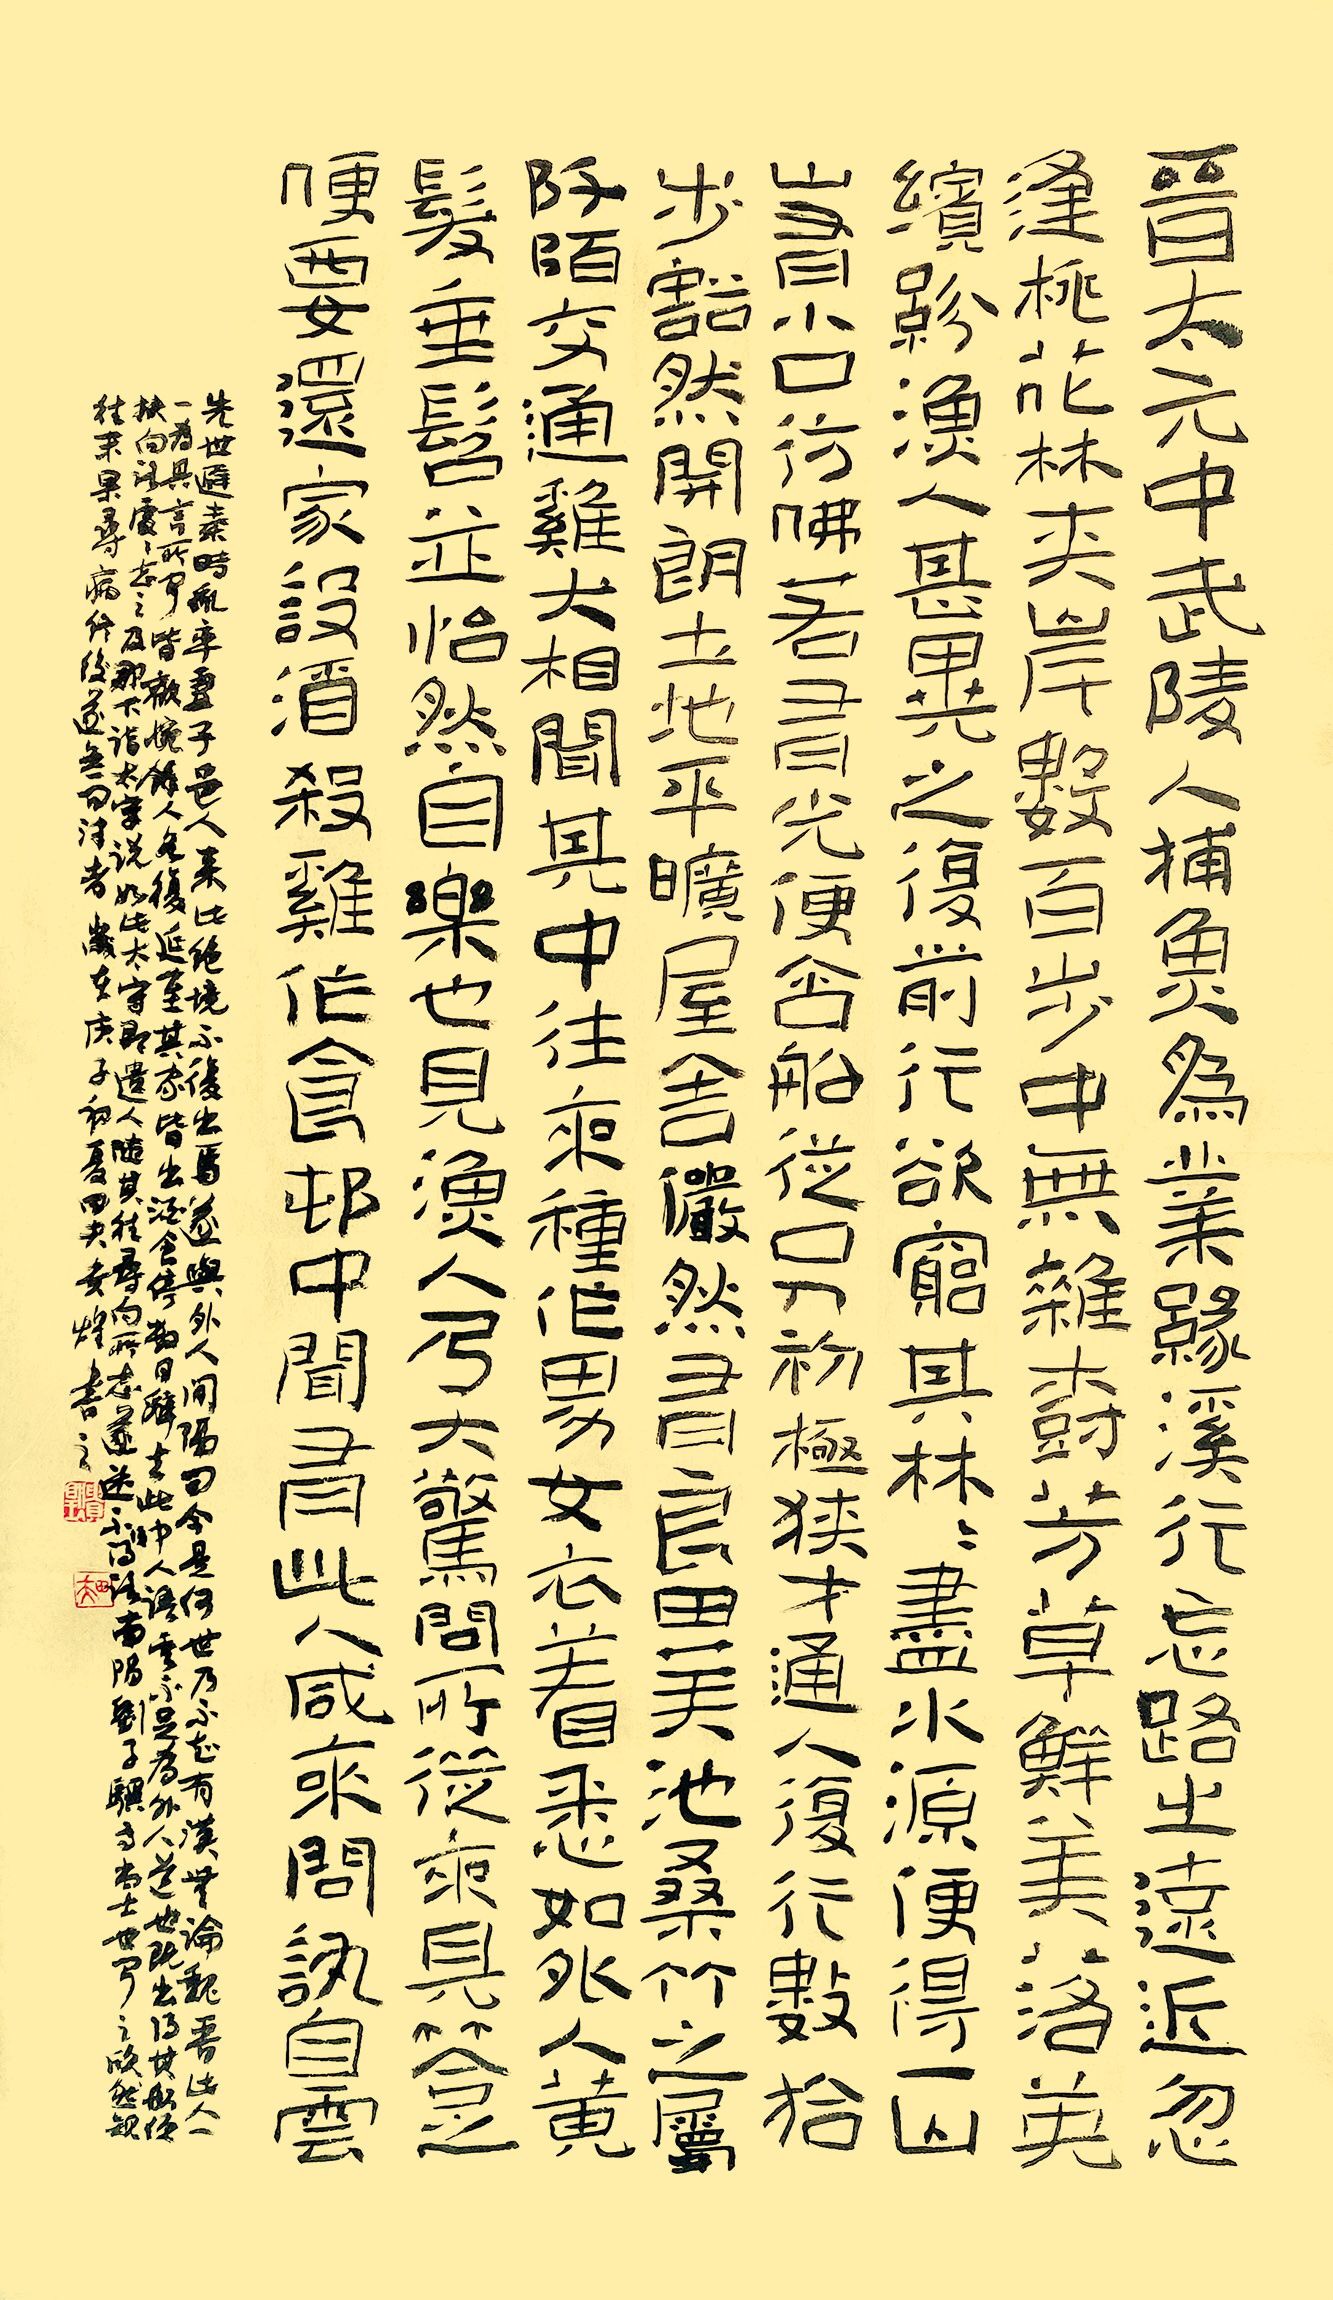 晉太元中武陵人捕魚為業緣溪行忘路之遠近忽
逢桃花林夾岸數百步中無雜樹芳草鮮美落英
繽紛漁人甚異之復前行欲窮其林〻盡水源便得一山
山有小口彷彿若有光便舍船從口入初極狹才通人復行數拾
步豁然開朗土地平曠屋舍儼然有良田美池桑竹之屬
阡陌交通雞犬相聞其中往來種作男女衣著悉如外人黃
髮垂髫並怡然自樂也見漁人乃大驚問所從來具答之
便要還家設酒殺雞作食邨中聞有此人咸來問訊自雲
先世避秦時亂率妻子邑人來此絕境不復出焉遂與外人間隔問今是何世乃不知有漢無論魏晉此人一
一為具言所聞皆歎惋餘人各復延至其家皆出酒食停數日辭去此中人語雲不足為外人道也既出得其船便
扶向路處〻志之及郡下詣太守說如此太守即遣人隨其往尋向所志遂迷不得路南陽劉子驥高尚士也聞之欣然規
往未果尋病終後遂無問津者歲在庚子初夏田夫煌書之